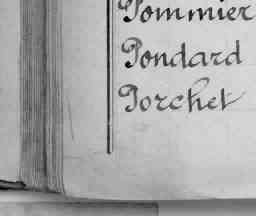 Pommier
Pondard
Porchet